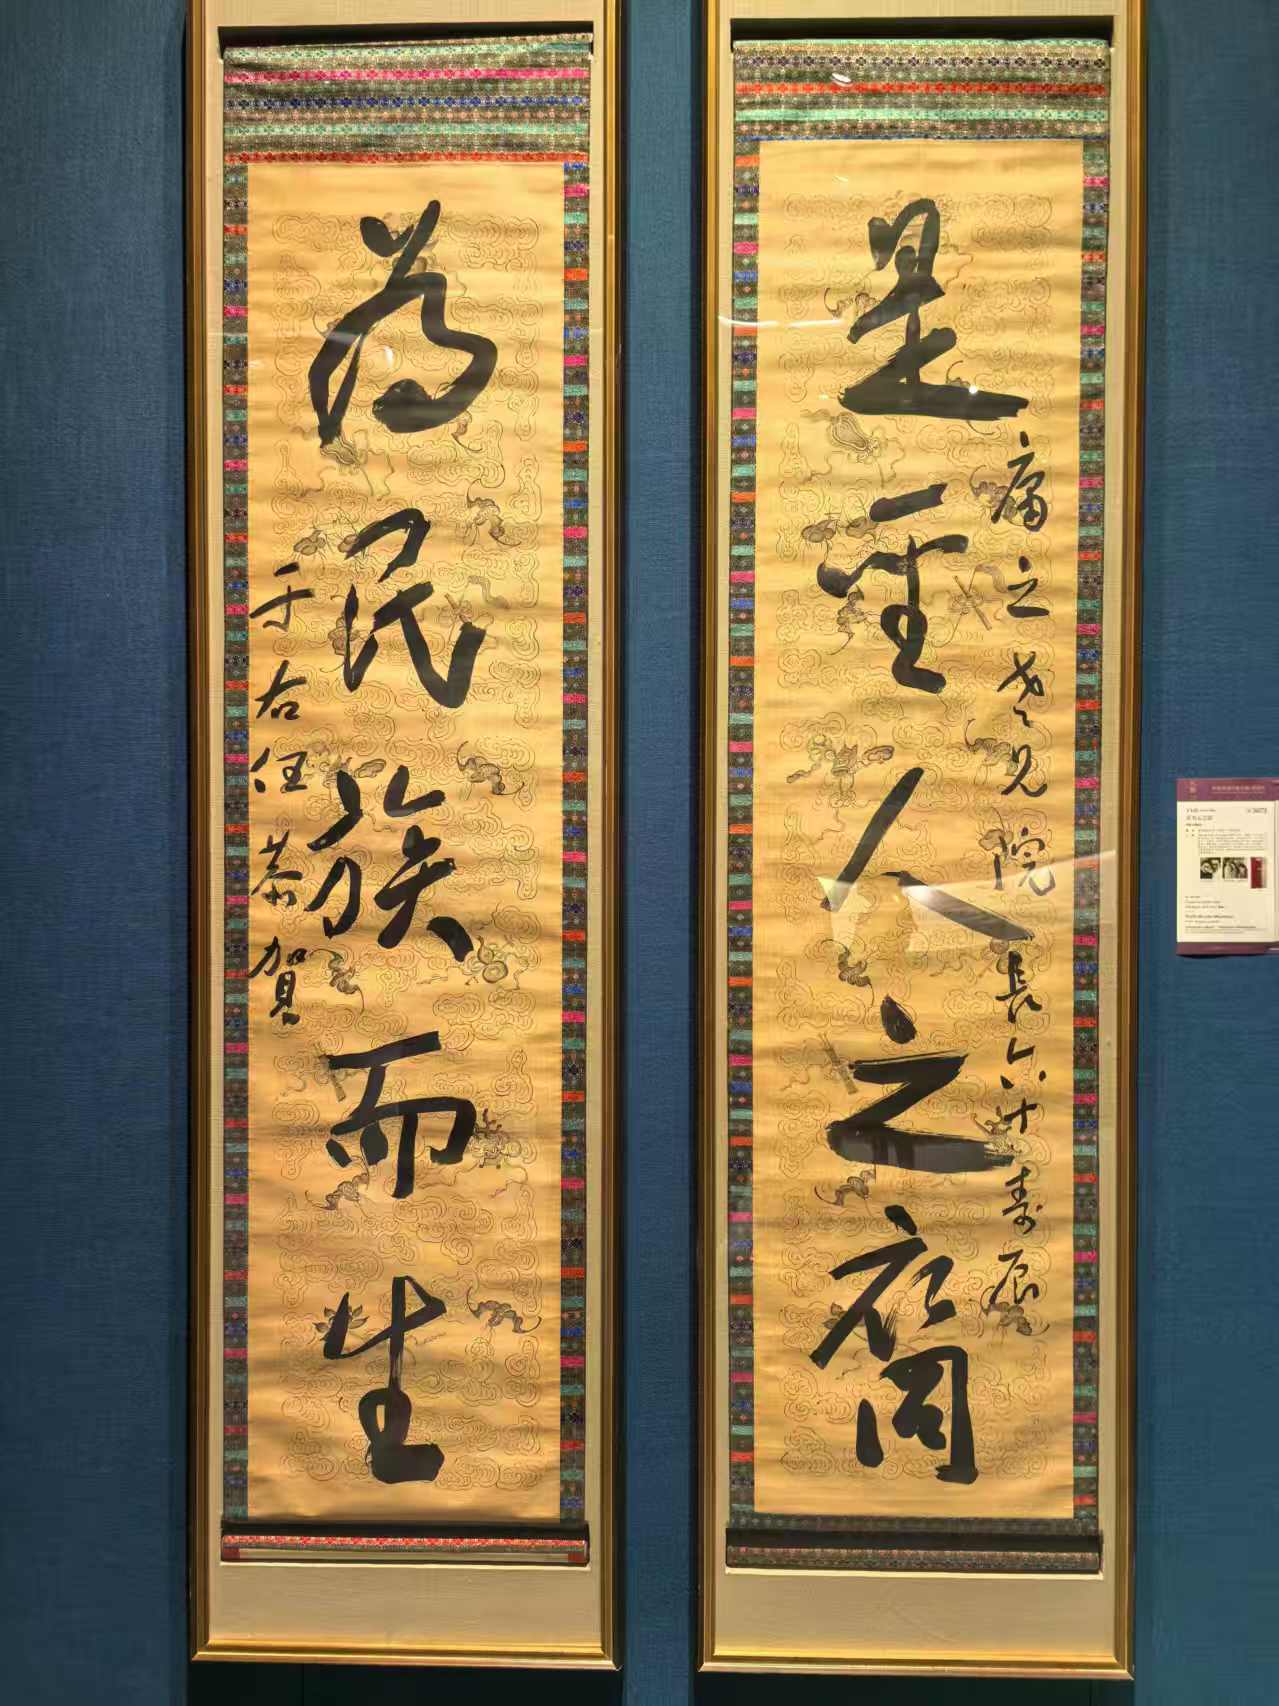 是聖人之裔
庸之老兄院長六十壽辰
為民族而生
于右任恭賀